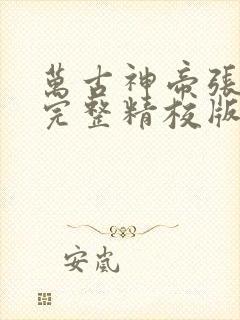 萬古神帝張
完整精校版
安嵐